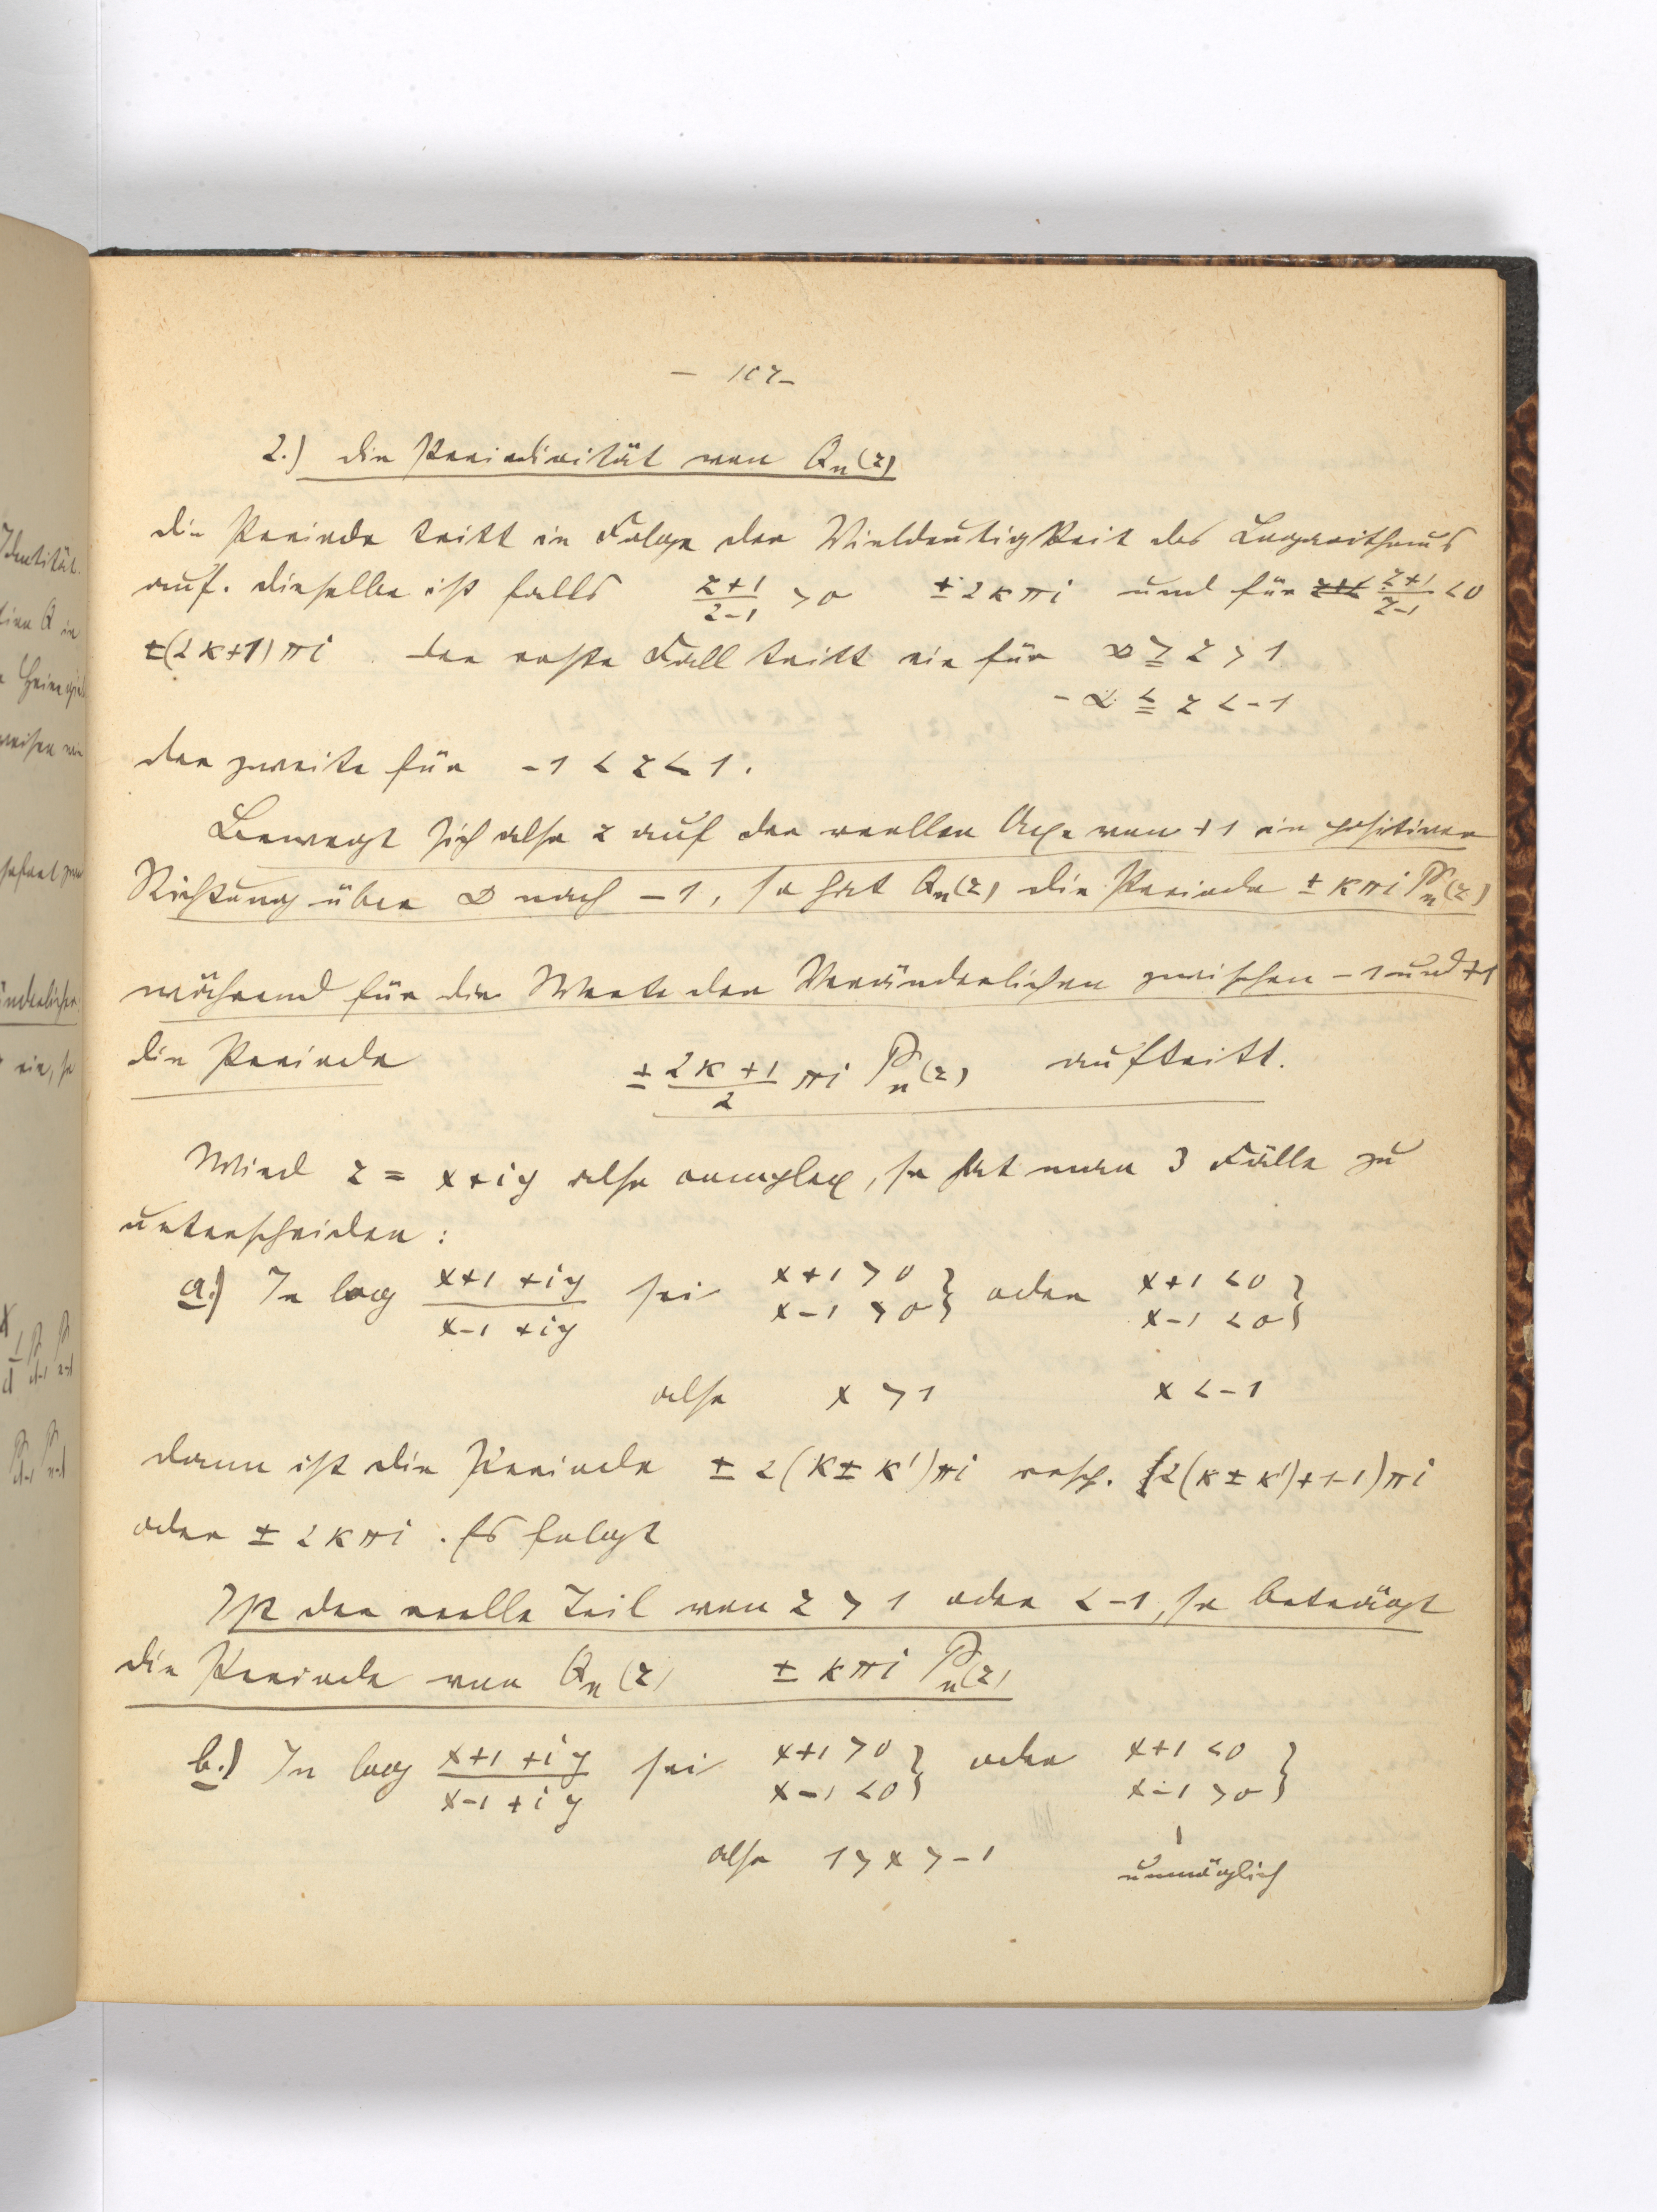 - 107 -
2.) die Periodicität von Qn(z)
die Periode tritt in Folge der Vieldeutigkeit des Logarithmus
auf. dieselbe ist falls (z+1)/(z-1) > 0 ± 2κπi und für (z+1)/(z-1) < 0
±(2κ+1)πi. der erste Fall tritt ein für ∞ ≧ z > 1
-∞ ≦ z < -1
der zweite für -1 < z < 1.
Bewegt sich also z auf der reellen Axe von +1 in positiver
Richtung über ∞ nach -1, so hat Qn(z) die Periode ± κπi Pn(z)
während für die Werte der Veränderlichen zwischen -1 und +1
die Periode ± (2κ+1)/2 πi Pn(z) auftritt.
Wird z = x+iy also complex, so hat man 3 Fälle zu
unterscheiden:
a.) In log (x+1+iy)/(x-1+iy) sei x+1 > 0 x-1 > 0 } oder x+1 < 0 x-1 < 0 }
also x > 1 x < -1
dann ist die Periode ± 2(κ ± κ')πi resp. (2(κ ± κ')+1-1)πi
oder ± 2κπi. Es folgt
Ist der reelle Teil von z > 1 oder < -1, so beträgt
die Periode von Qn(z) ± κπi Pn(z)
b.) In log (x+1+iy)/(x-1+iy) sei x+1 > 0 x-1 < 0 } oder x+1 < 0 x-1 > 0 }
also 1 > x > -1 unmöglich